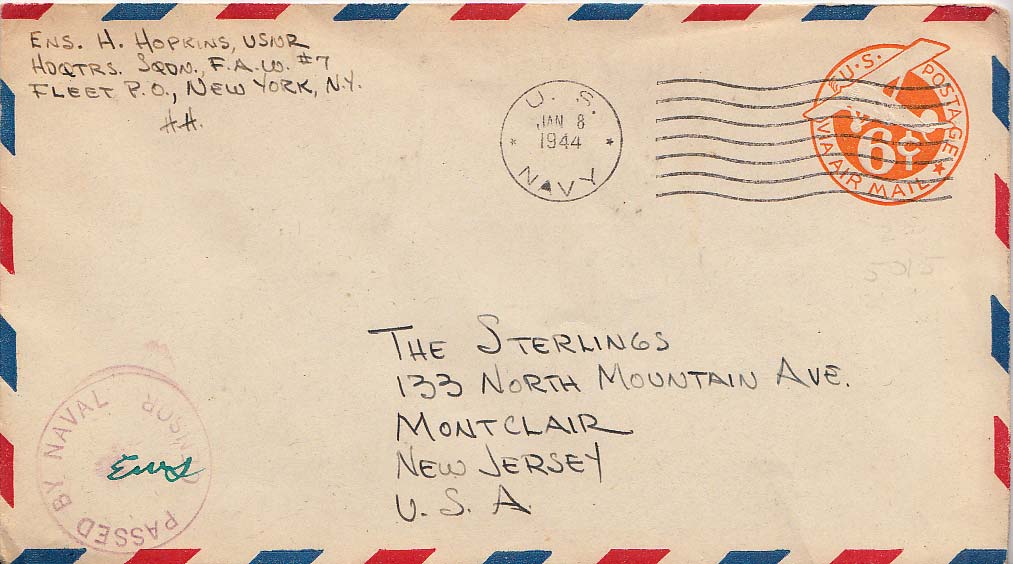 ENS. H. HOPKINS, USNR
HDQTRS. SQDN., F.A.W. #7
FLEET P.O., NEW YORK, N.Y.
H.H.
U. S.
JAN 8
1944
NAVY
U.S. POSTAGE
6¢
VIA AIR MAIL
5015
THE STERLINGS
133 NORTH MOUNTAIN AVE.
MONTCLAIR
NEW JERSEY
U. S. A
PASSED BY NAVAL CENSOR